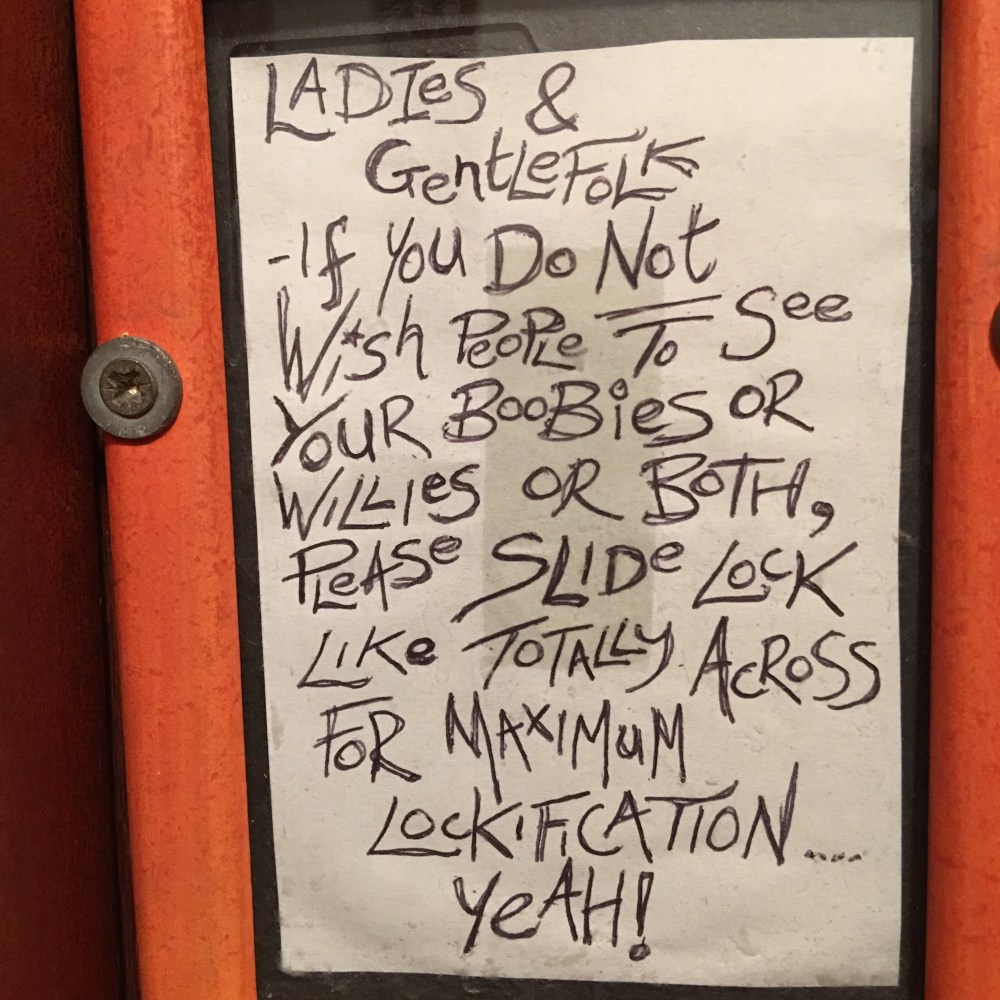 LADIes &
GentLeFoLK
-If You Do Not
Wish PeoPLe To See
YOUR BooBies OR
WILLIes OR BOTH,
PLeASe SLIDe LOcK
LIKe TOTALLY AcROSS
FOR MAxIMuM
LOcKiFICATION.....
YeAH!